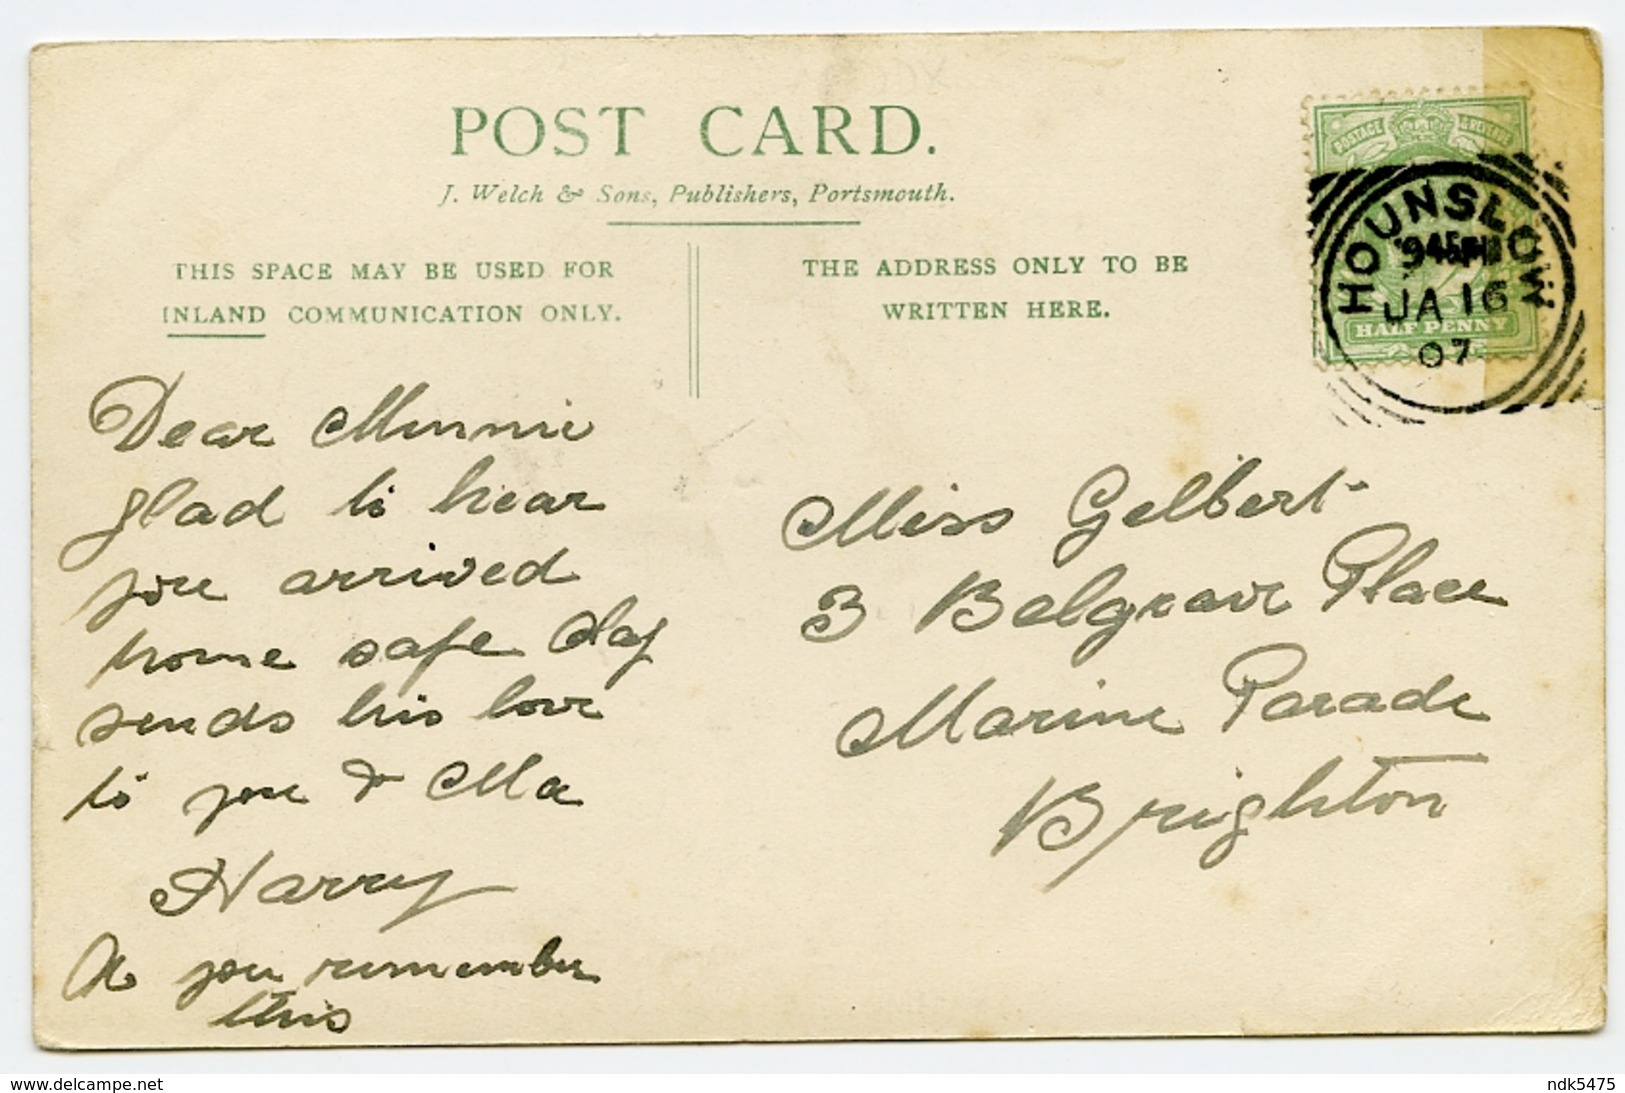 POST CARD.
J. Welch & Sons, Publishers, Portsmouth.
THIS SPACE MAY BE USED FOR
INLAND COMMUNICATION ONLY.
THE ADDRESS ONLY TO BE
WRITTEN HERE.
POSTAGE & REVENUE
HALF PENNY
HOUNSLOW
9 45 PM
JA 16
07
Dear Minnie
glad to hear
you arrived
home safe
sends his love
to you & Ma
Harry
you remember
this
Miss Gelbert
3 Belgrave Place
Marine Parade
Brighton
www.delcampe.net
ndk5475